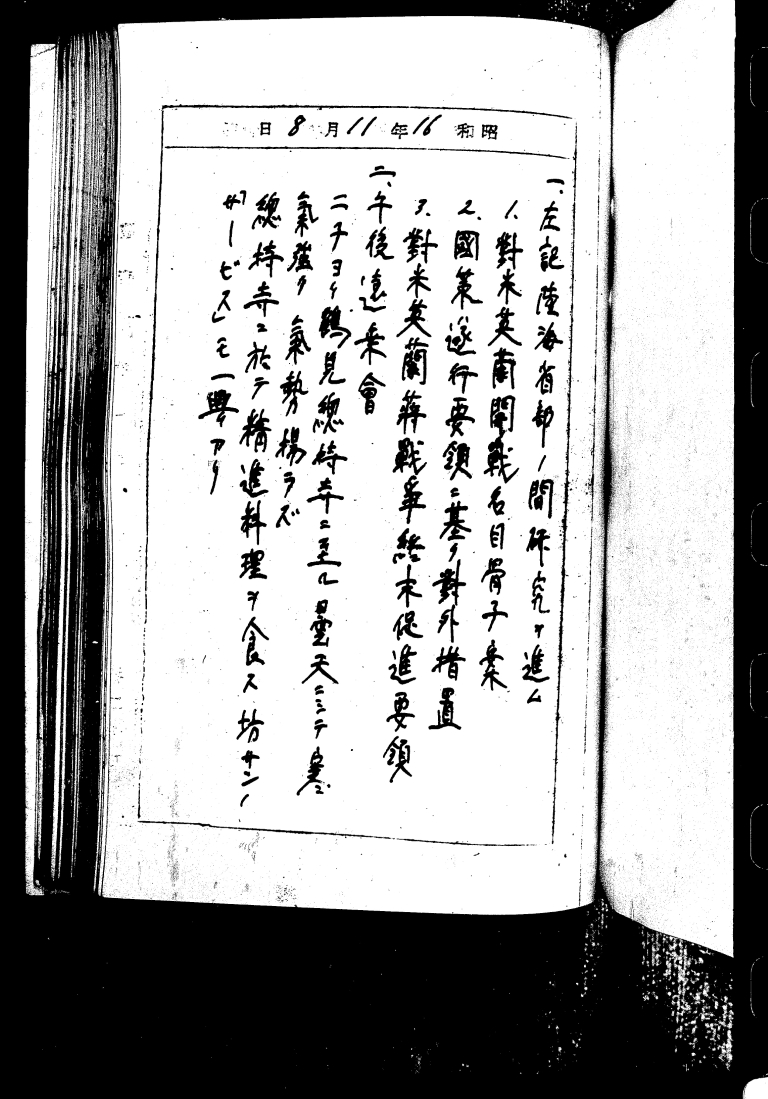 昭和16年11月8日
一、左記陸海省部ノ間研究ヲ進ム
1. 對米英蘭開戰名目骨子案
2. 國策遂行要領ニ基ク對外措置
3. 對米英蘭蔣戰爭終末促進要領
二、午後遠乘會
ニチヨリ鶴見總持寺ニ至ル曇天ニシテ寒
氣強ク氣勢揚ラズ
總持寺ニ於テ精進料理ヲ食ス坊サンノ
「サービス」モ一興アリ